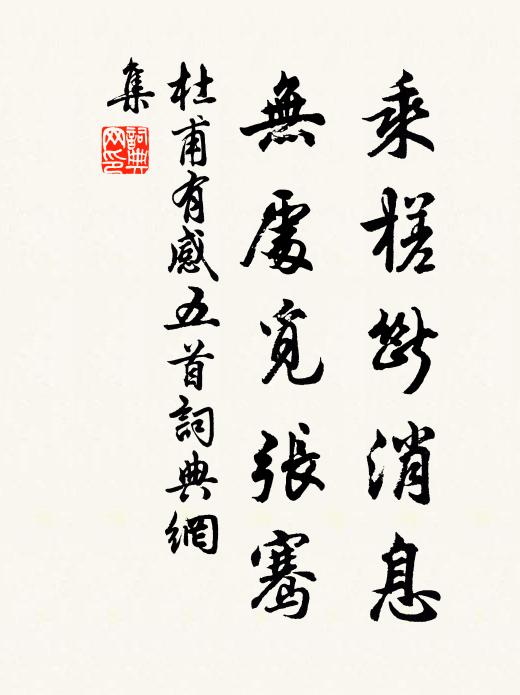 乘槎斷消息
無處覓張騫
杜甫有感五首詞典網
集
詞典
網印